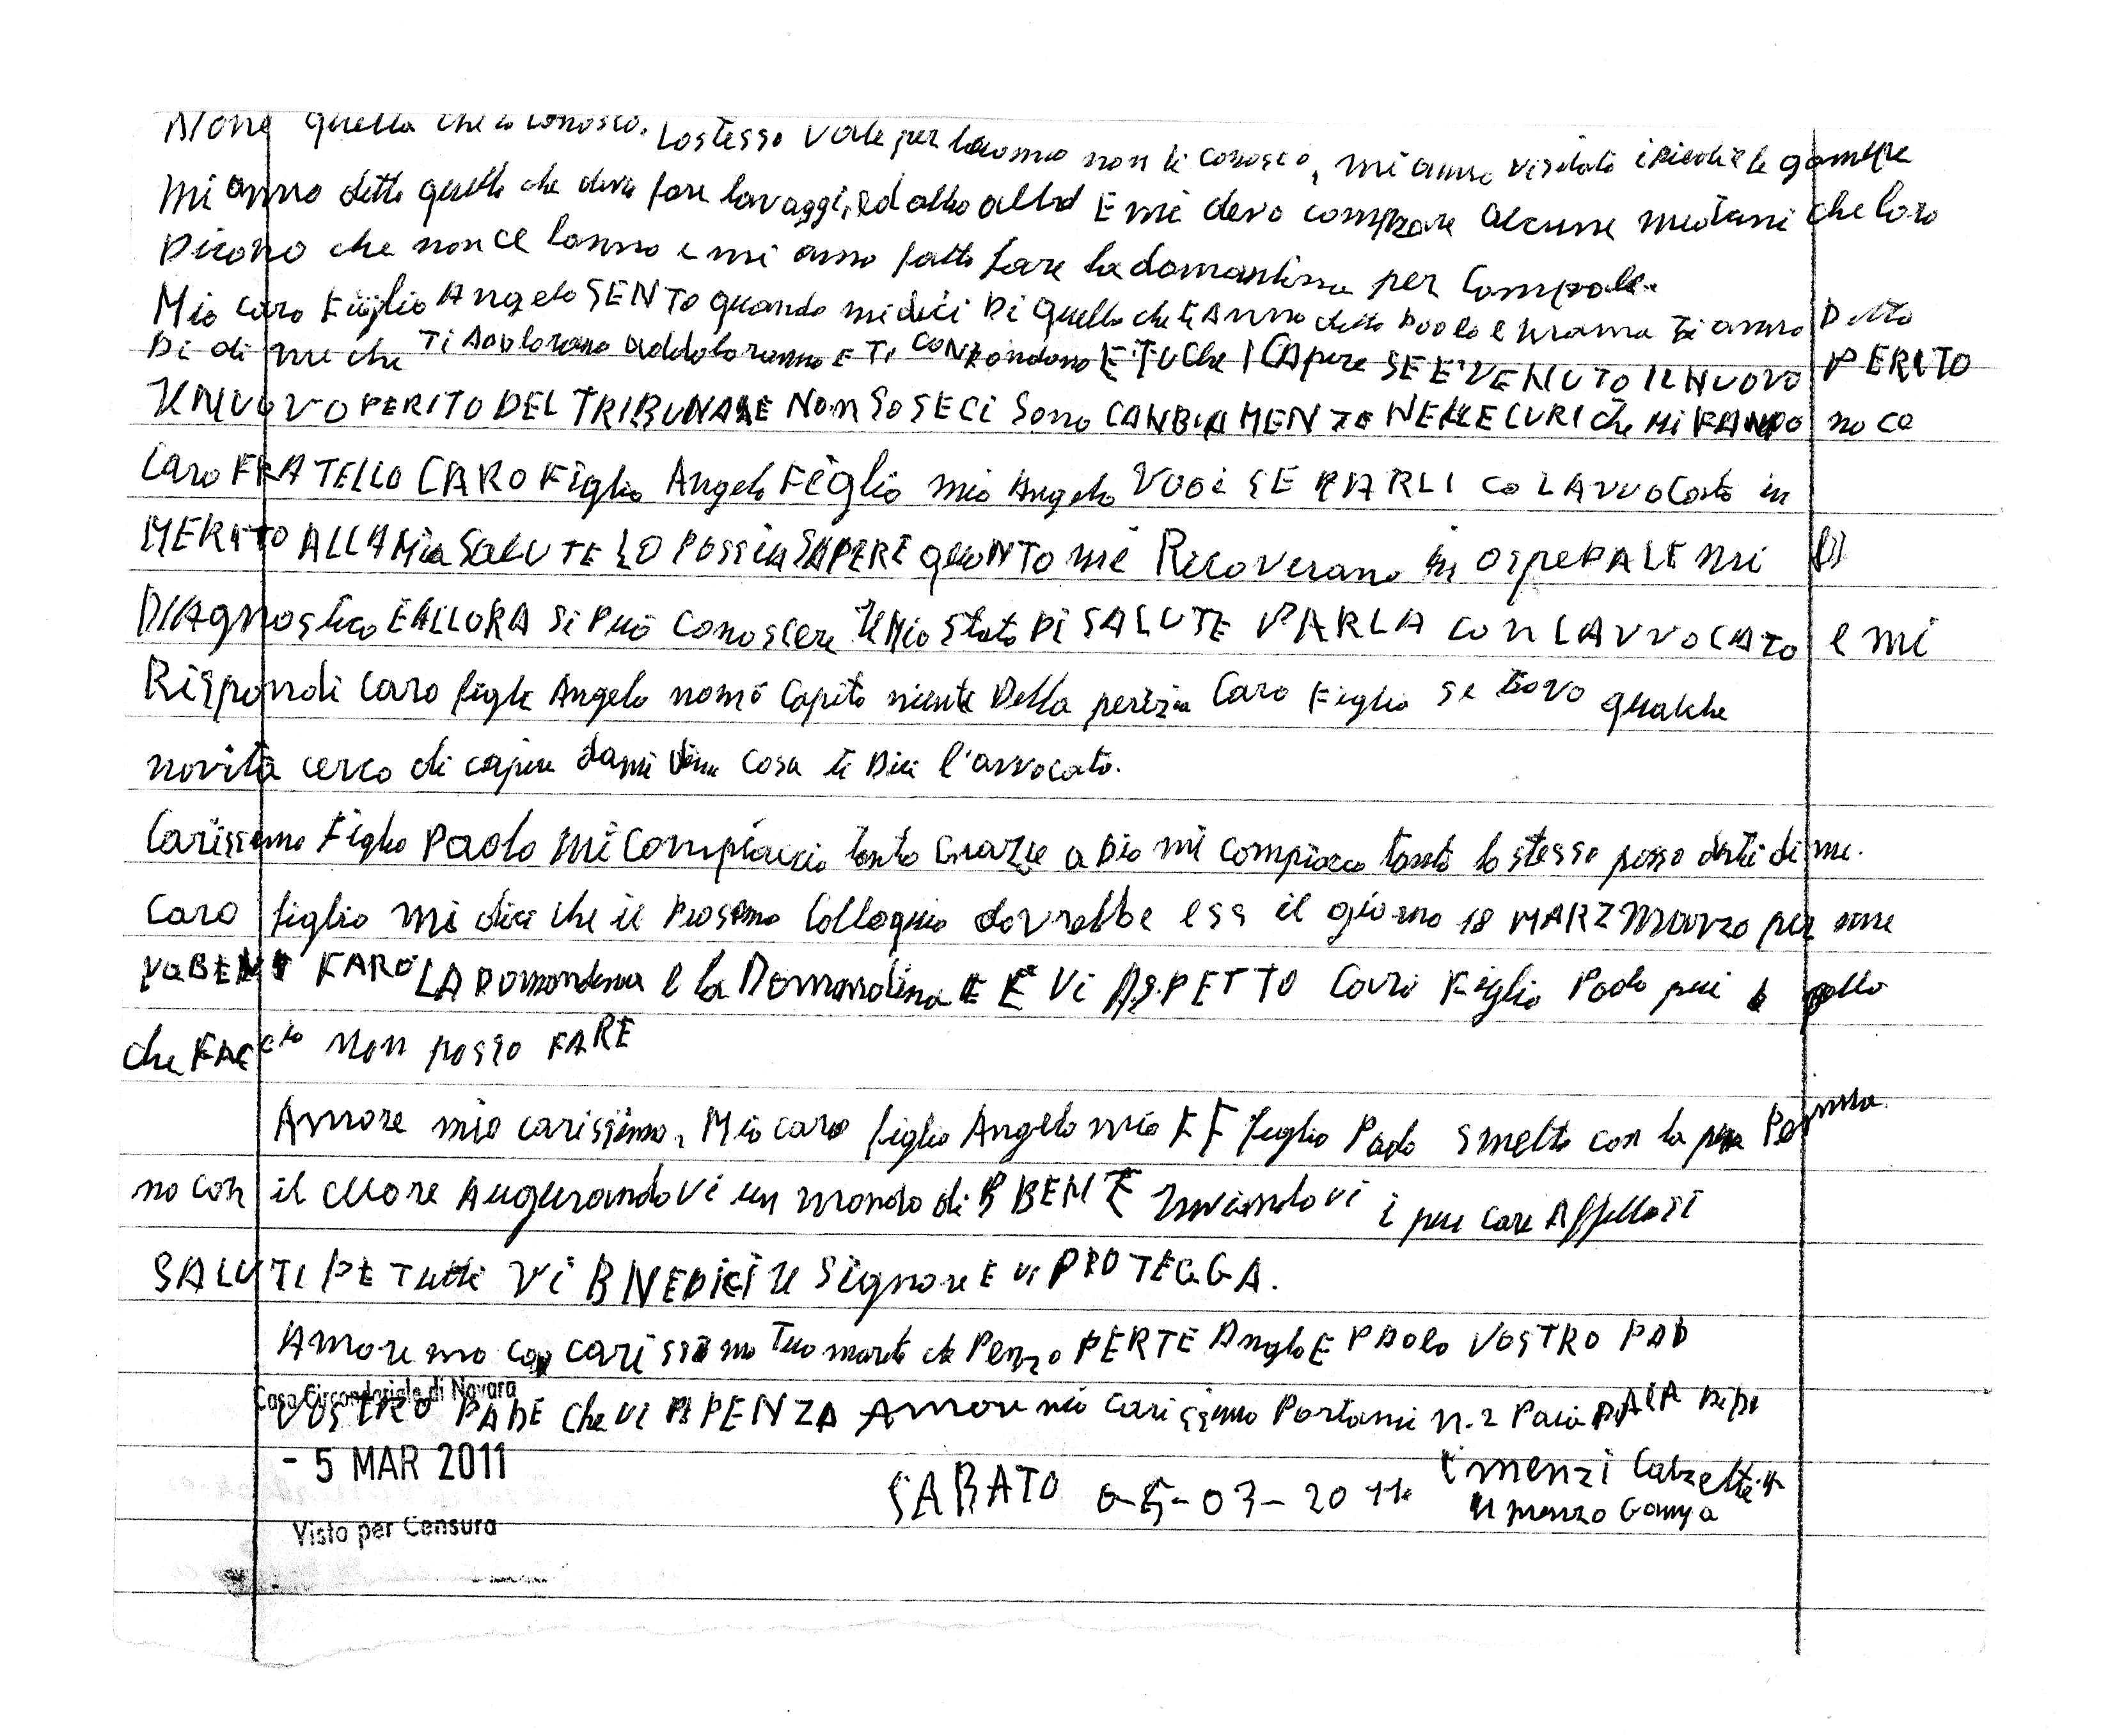 quella che io conosco. Lo stesso vale per non li conosco, mi anno visitato i piedi e le gambe
Mi anno detto quello che devo fare lavaggi, ed altro E mi devo comprare alcune che loro
Dicono che non ce lanno e mi anno fatto fare la domandina per
Mio caro Figlio Angelo SENTO quando mi dici Di quello che ti Anno detto Paolo e mamma Ti anno Detto
Di di me che Ti addolorano E Ti CONFondono E TU Che SE E' VENUTO IL NUOVO PERITO
IL NUOVO PERITO DEL TRIBUNALE Non SO SE CI Sono NELLE CURI che MI FANDO no ca
Caro FRATELLO CARO Figlio Angelo FiGlio mio Angelo VUOi SE PARLI co LAVVOCato in
MERITO ALLA Mia SALUTE LO POSSIA SAPERE quaNTO mi Ricoverano in OSPEDALE mi
DIAgnostico E ALLORA Si Può Conoscere Il Mio Stato Di SALUTE PARLA con LAVVOCATO e mi
Rispondi caro figlo Angelo nonò Capito niente Della perizia Caro Figlio se trovo qualche
novità cerco di capire cosa ti Dici l'avvocato.
Carissimo Figlio Paolo Mi Compiaccio tanto Grazie a Dio mi compiaccio tanto lo stesso posso dirti di me.
Caro figlio mi dici che il Prosimo Colloquio dovrebbe ess il giorno 18 MARZ Marzo per me
va BENE FARO' LA Domandina e la Domandina E E Vi ASPETTO Caro Figlio Paolo piu
che FACCio non posso FARE
Amore mio carissimo, Mio caro figlio Angelo mio E F figlio Paolo smetto con la Penna
no con il cuore AugurandoVi un mondo di B BENE InviandoVi i piu cari Affettosi
SALUTI PE Tutti Vi BNEDICI Il Signore E Vi PROTEGGA.
Amore mo carissimo Tuo marito che Penzo PERTE Anglo E PAOLO VOSTRO PAD
VOSTRO PADE Che Vi PENZA Amore mio carissimo Portami n. 2 Paia
Casa Circondariale di Novara
- 5 MAR 2011
SABATO 0-5-03-2011
Visto per Censura